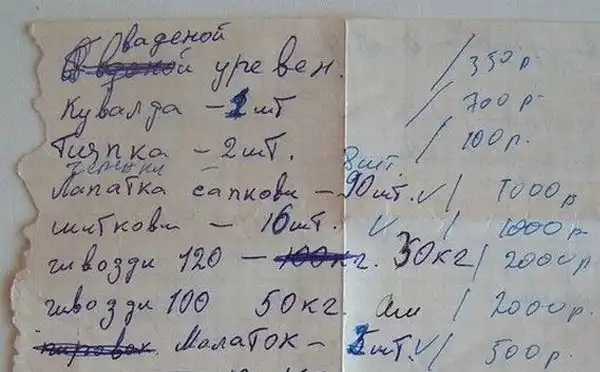 ваденой
уревен. / 350 р
Кувалда - 1 шт / 700 р
Тияпка - 2 шт. / 100 р.
8 шт.
Лапатка сапкови - 90 шт. V / 1000 р
шиткови - 16 шт. V / 1000 р
гивозди 120 - 100кг. 30 кг / 2000 р.
гивозди 100 50 кг. / 2000 р.
Малаток - шт. V / 500 р.